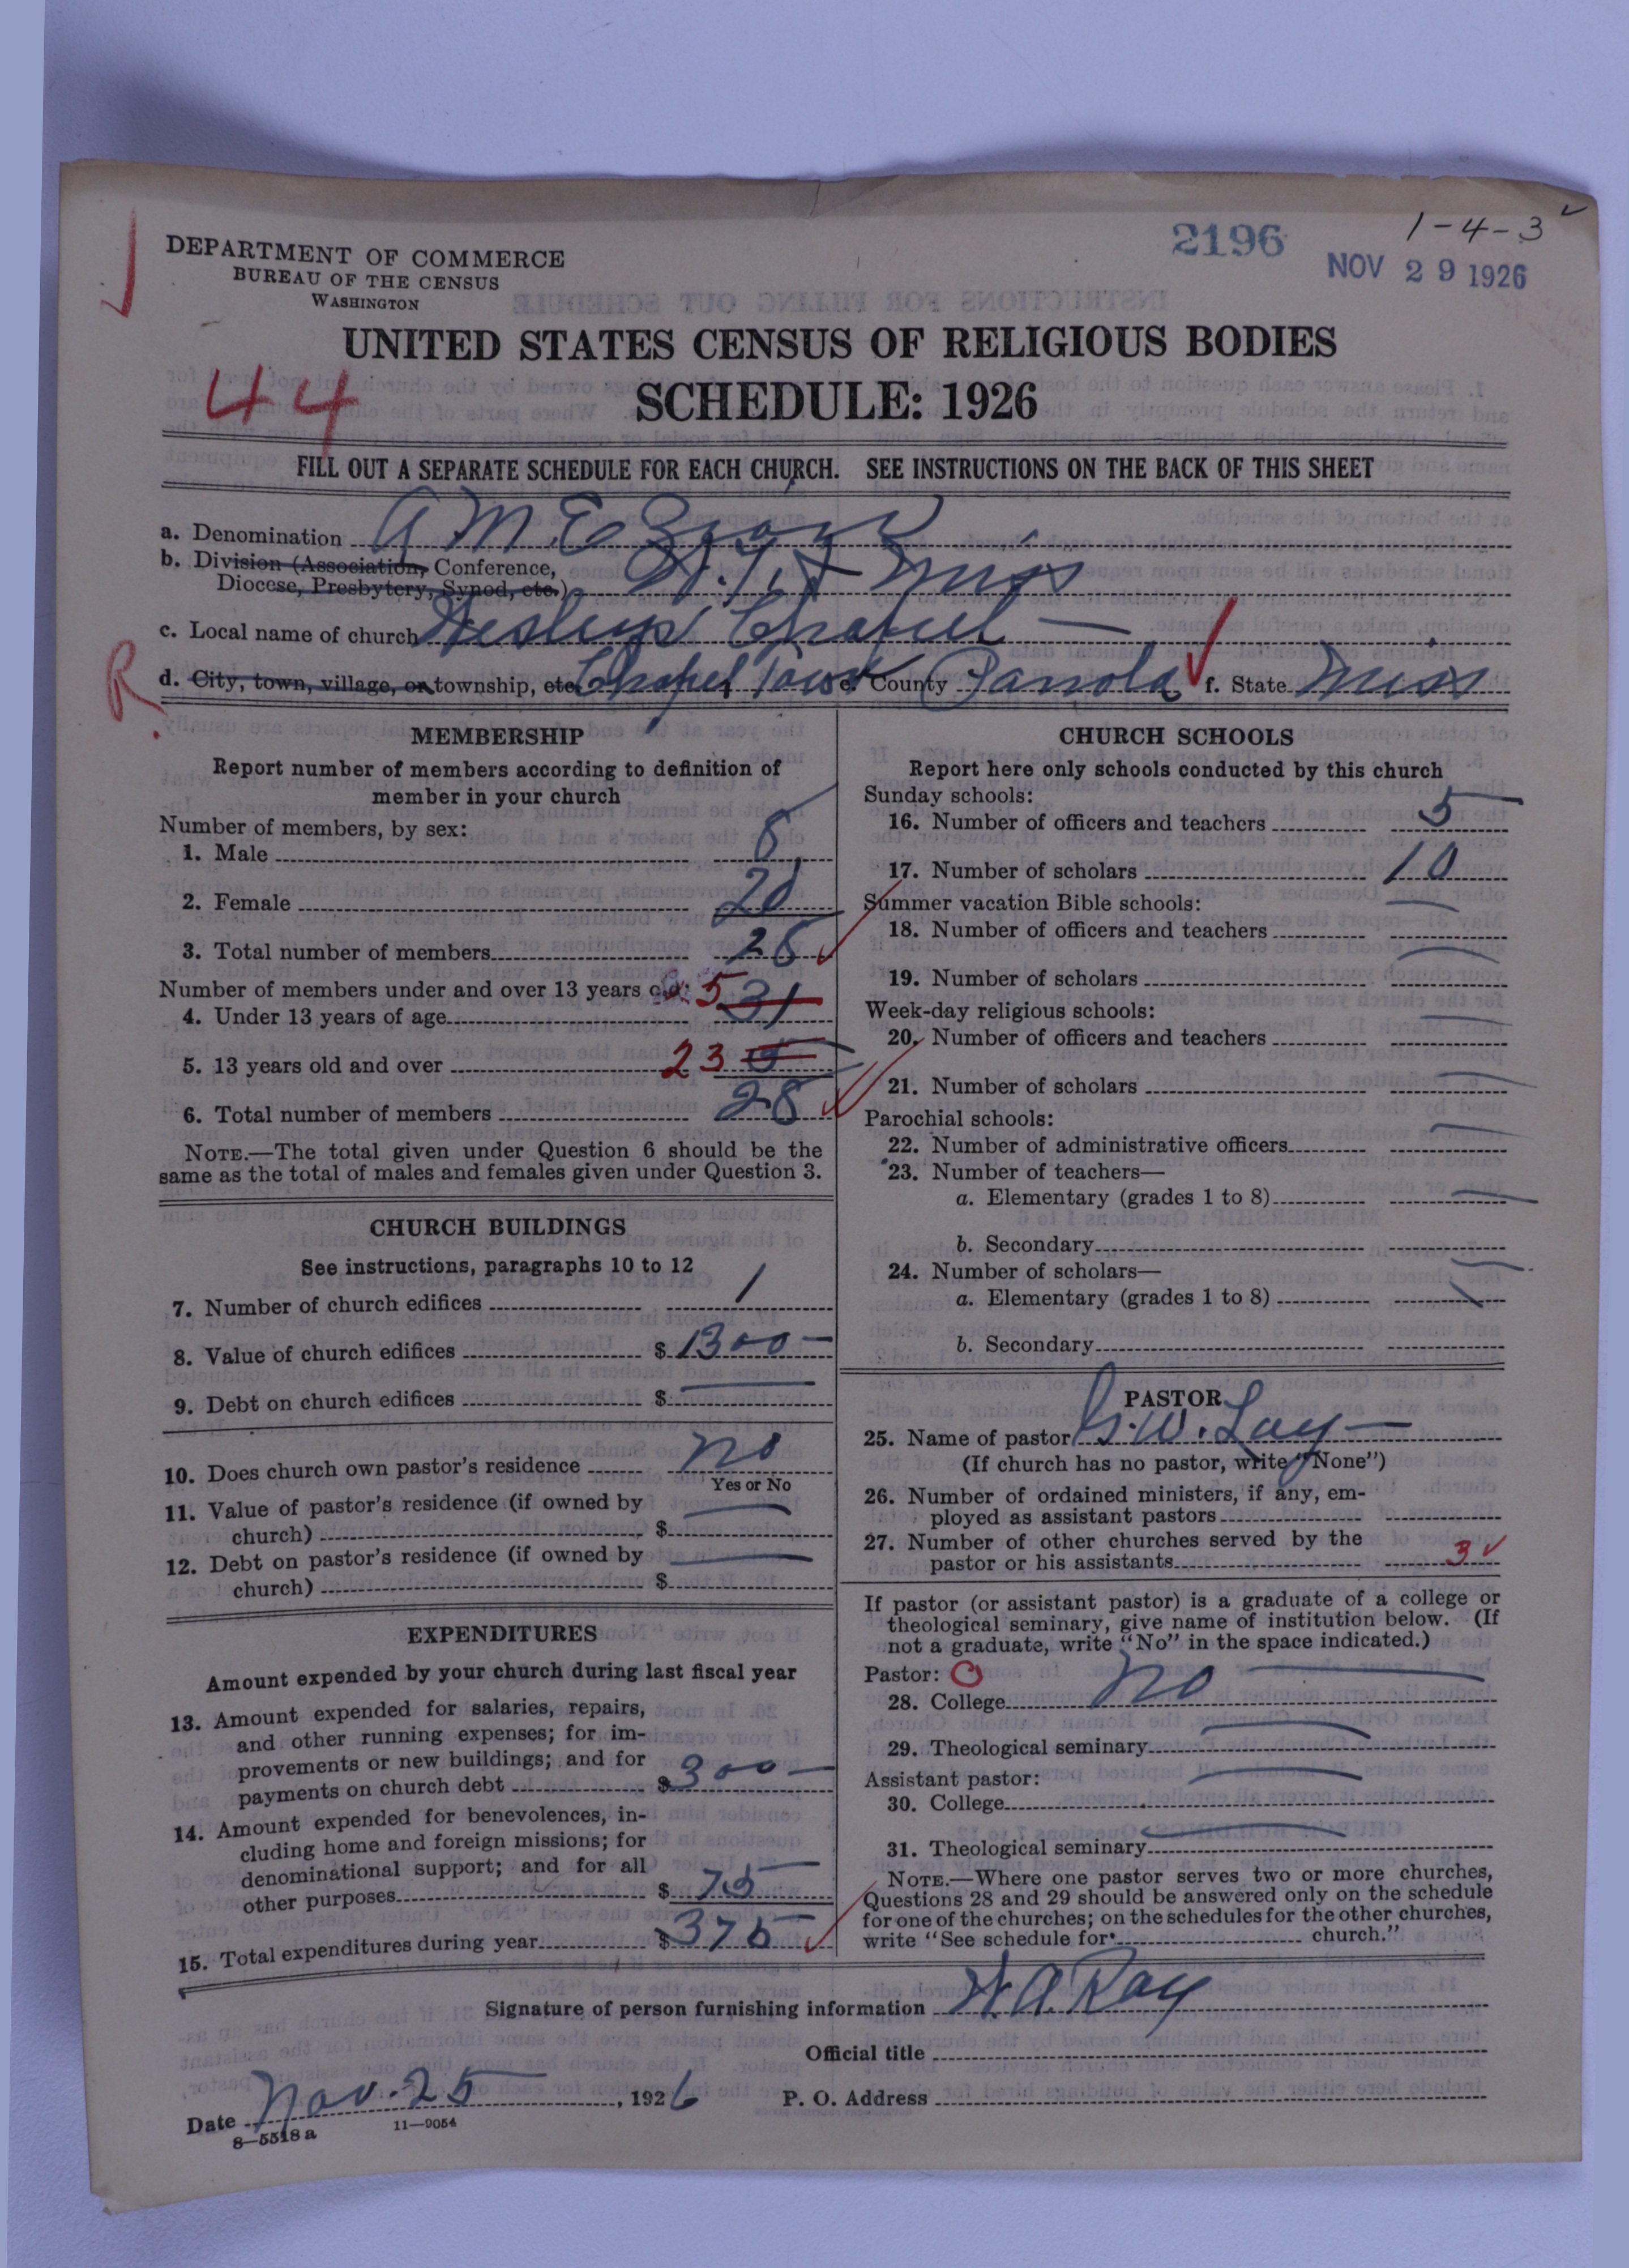 1-4-3
2196
NOV 29 1926
DEPARTMENT OF COMMERCE
BUREAU OF THE CENSUS
WASHINGTON
UNITED STATES CENSUS OF RELIGIOUS BODIES
44
SCHEDULE: 1926
FILL OUT A SEPARATE SCHEDULE FOR EACH CHURCH. SEE INSTRUCTIONS ON THE BACK OF THIS SHEET
a. Denomination A M. E Zion
b. Division (Association, Conference,
Diocese, Presbytery, Synod, etc.) Miss
c. Local name of church Wesley Chapel
R
d. City, town, village, or township, etc. Chapel Town e. County Panola f. State Miss
MEMBERSHIP
Report number of members according to definition of
member in your church
Number of members, by sex:
1. Male 8
2. Female 20
3. Total number of members 28
Number of members under and over 13 years old:
4. Under 13 years of age 5 31
5. 13 years old and over 23
6. Total number of members 28
NOTE.—The total given under Question 6 should be the
same as the total of males and females given under Question 3.
CHURCH BUILDINGS
See instructions, paragraphs 10 to 12
7. Number of church edifices 1
8. Value of church edifices $ 1300 —
9. Debt on church edifices $ —
10. Does church own pastor's residence no
Yes or No
11. Value of pastor's residence (if owned by
church) $ —
12. Debt on pastor's residence (if owned by
church) $ —
EXPENDITURES
Amount expended by your church during last fiscal year
13. Amount expended for salaries, repairs,
and other running expenses; for im-
provements or new buildings; and for
payments on church debt $ 300 —
14. Amount expended for benevolences, in-
cluding home and foreign missions; for
denominational support; and for all
other purposes $ 75
15. Total expenditures during year $ 375
CHURCH SCHOOLS
Report here only schools conducted by this church
Sunday schools:
16. Number of officers and teachers 5
17. Number of scholars 10
Summer vacation Bible schools:
18. Number of officers and teachers —
19. Number of scholars —
Week-day religious schools:
20. Number of officers and teachers —
21. Number of scholars —
Parochial schools:
22. Number of administrative officers —
23. Number of teachers—
a. Elementary (grades 1 to 8) —
b. Secondary
24. Number of scholars—
a. Elementary (grades 1 to 8)
b. Secondary
PASTOR
25. Name of pastor G. W. Lay —
(If church has no pastor, write "None")
26. Number of ordained ministers, if any, em-
ployed as assistant pastors
27. Number of other churches served by the
pastor or his assistants 3
If pastor (or assistant pastor) is a graduate of a college or
theological seminary, give name of institution below. (If
not a graduate, write "No" in the space indicated.)
Pastor: O
28. College no —
29. Theological seminary —
Assistant pastor:
30. College —
31. Theological seminary —
NOTE.—Where one pastor serves two or more churches,
Questions 28 and 29 should be answered only on the schedule
for one of the churches; on the schedules for the other churches,
write "See schedule for church."
Signature of person furnishing information W. A. Ray
Official title
Date Nov. 25, 1926 P. O. Address
8—5518 a 11—9054